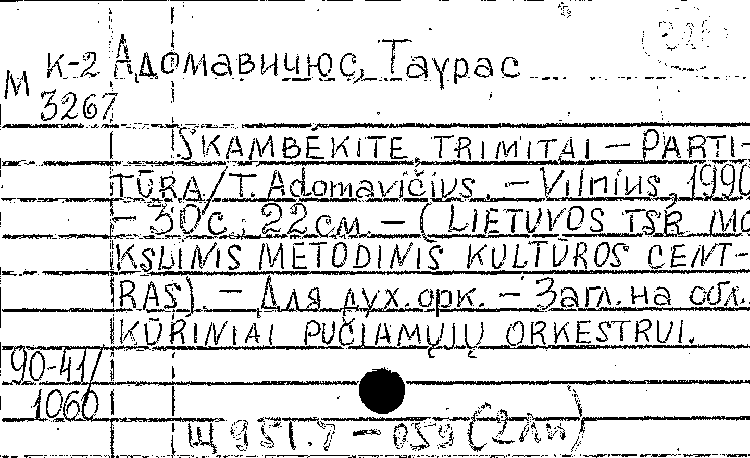 М К-2 Адомавичюс, Таурас
3267
SKAMBĖKITE, TRIMITAI — PARTI-
TŪRA / T. Adomavičius. — Vilnius, 1990
— 30 с.; 22 см. — (LIETUVOS TSR MO
KSLINIS METODINIS KULTŪROS CENT-
RAS). — Для дух. орк. — Загл. на обл.
KŪRINIAI PUČIAMŲJŲ ORKESTRUI.
90-41/
1060
Щ 951.7 — 059 (2Ли)